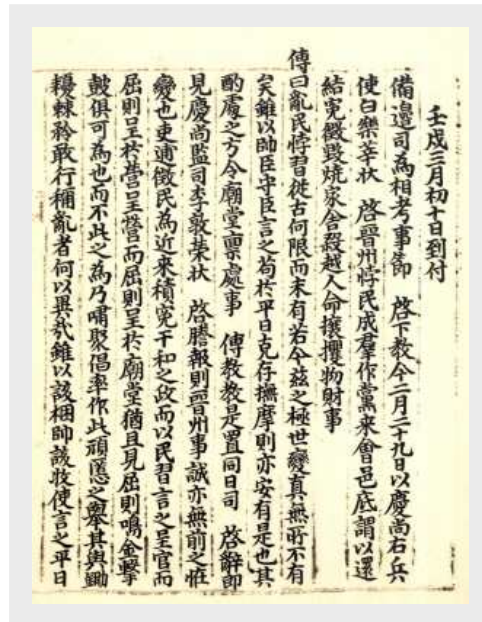 壬戌三月初十日到付
備邊司爲相考事節 啓下敎今二月二十九日以慶尙右兵
使白樂莘狀 啓晉州悖民成羣作黨來會邑底謂以還
結寃毀燒家舍殺越人命攘攫物財事
傳曰亂民悖習從古何限而未有若今玆之極世變眞無所不有
矣雖以帥臣守臣言之苟於平日克存撫摩則亦安有是也其
酌處之方令廟堂稟處事 傳敎敎是置同日司 啓辭卽
見慶尙監司李敦榮狀 啓謄報則晉州事誠亦無前之恠
變也吏逋徵民爲近來積寃干和之政而以民習言之呈官而
屈則呈於營呈營而屈則呈於廟堂猶且見屈則鳴金擊
皷俱可爲也而不此之爲乃嘯聚倡率作此頑慝之擧其與鋤
耰棘矜敢行稱亂者何以異哉雖以該梱帥該牧使言之平日